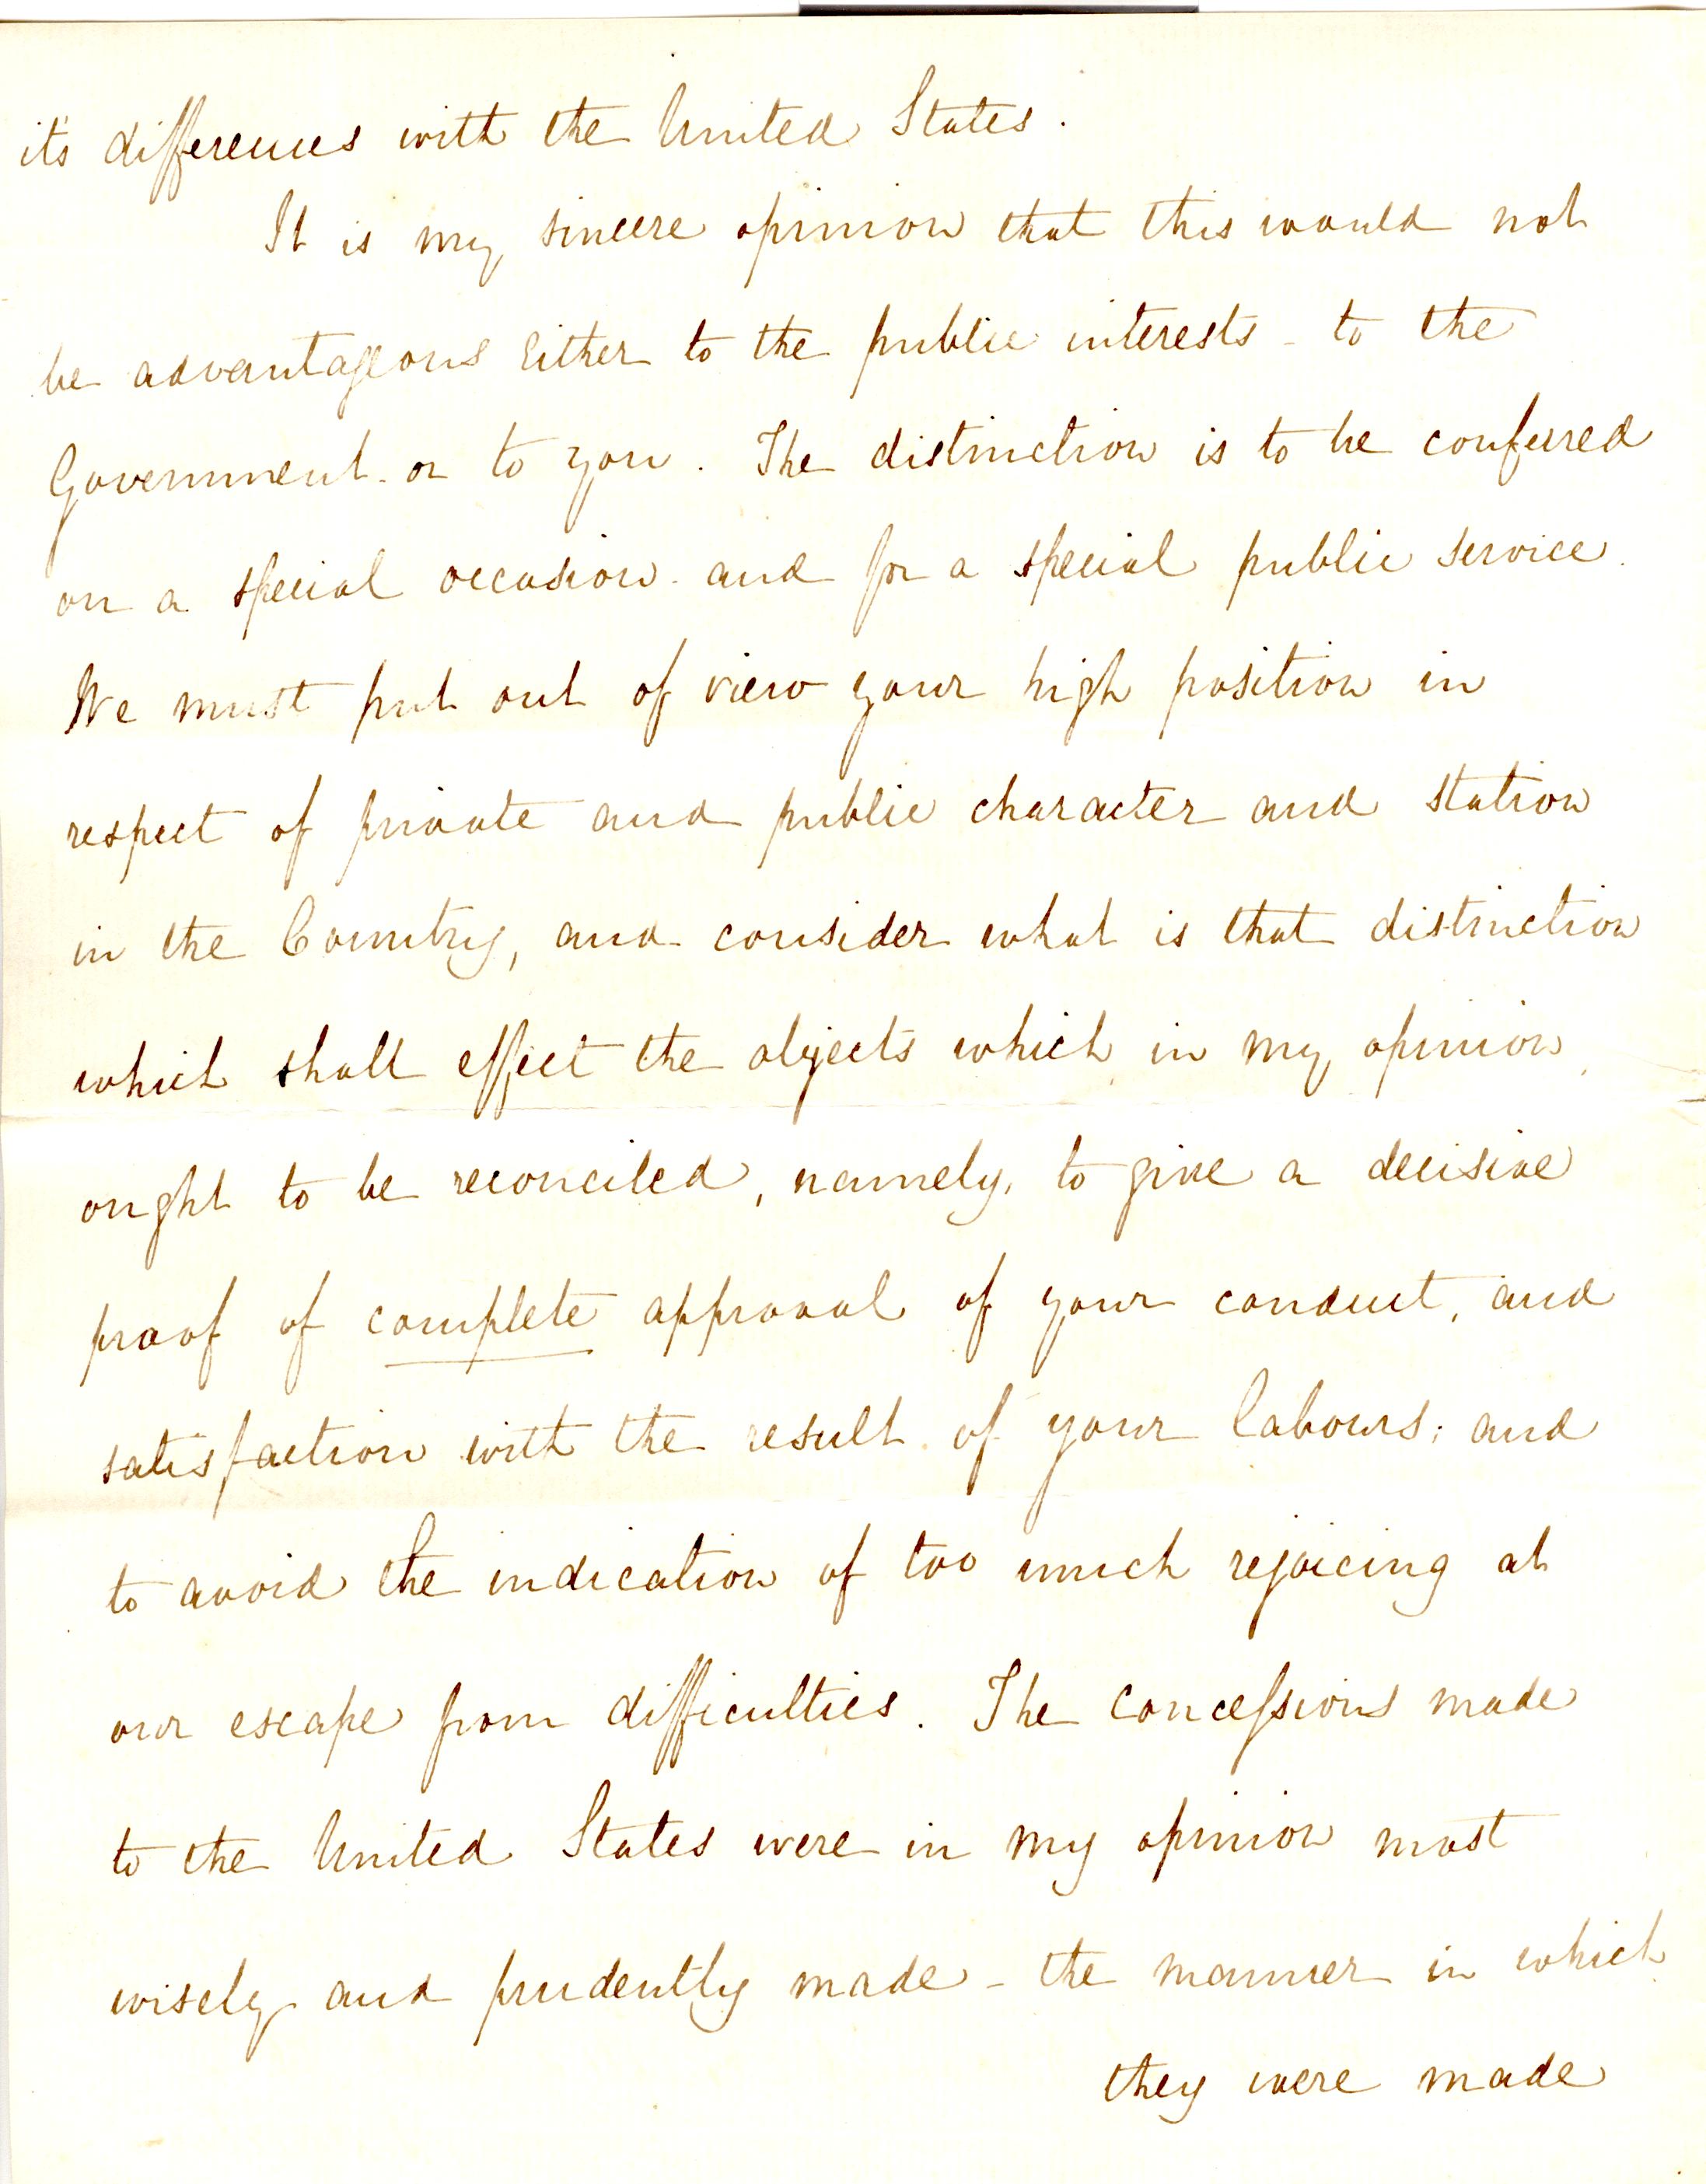 it's differences with the United States.
It is my sincere opinion that this would not
be advantageous either to the public interests - to the
Government - or to you. The distinction is to be conferred
on a special occasion - and for a special public service.
We must put out of view your high position in
respect of private and public character and station
in the Country, and consider what is that distinction
which shall effect the objects which, in my opinion,
ought to be reconciled, namely, to give a decisive
proof of complete approval of your conduct, and
satisfaction with the result of your labours; and
to avoid the indication of too much rejoicing at
our escape from difficulties. The concessions made
to the United States were in my opinion most
wisely and prudently made - the manner in which
they were made